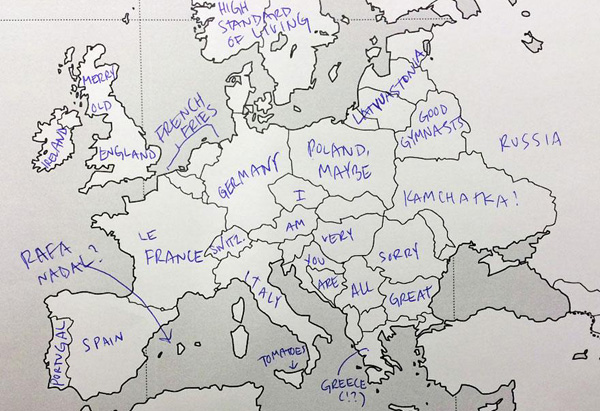 HIGH
STANDARD
OF LIVING
MERRY
OLD
ENGLAND
IRELAND
FRENCH
FRIES
LATVIASTONIA
GOOD
GYMNASTS
RUSSIA
GERMANY
POLAND,
MAYBE
KAMCHATKA!
I
AM
VERY
SORRY
LE
FRANCE
SWITZ.
YOU
ARE
ALL
GREAT
RAFA
NADAL?
ITALY
PORTUGAL
SPAIN
TOMATOES
GREECE
(!?)